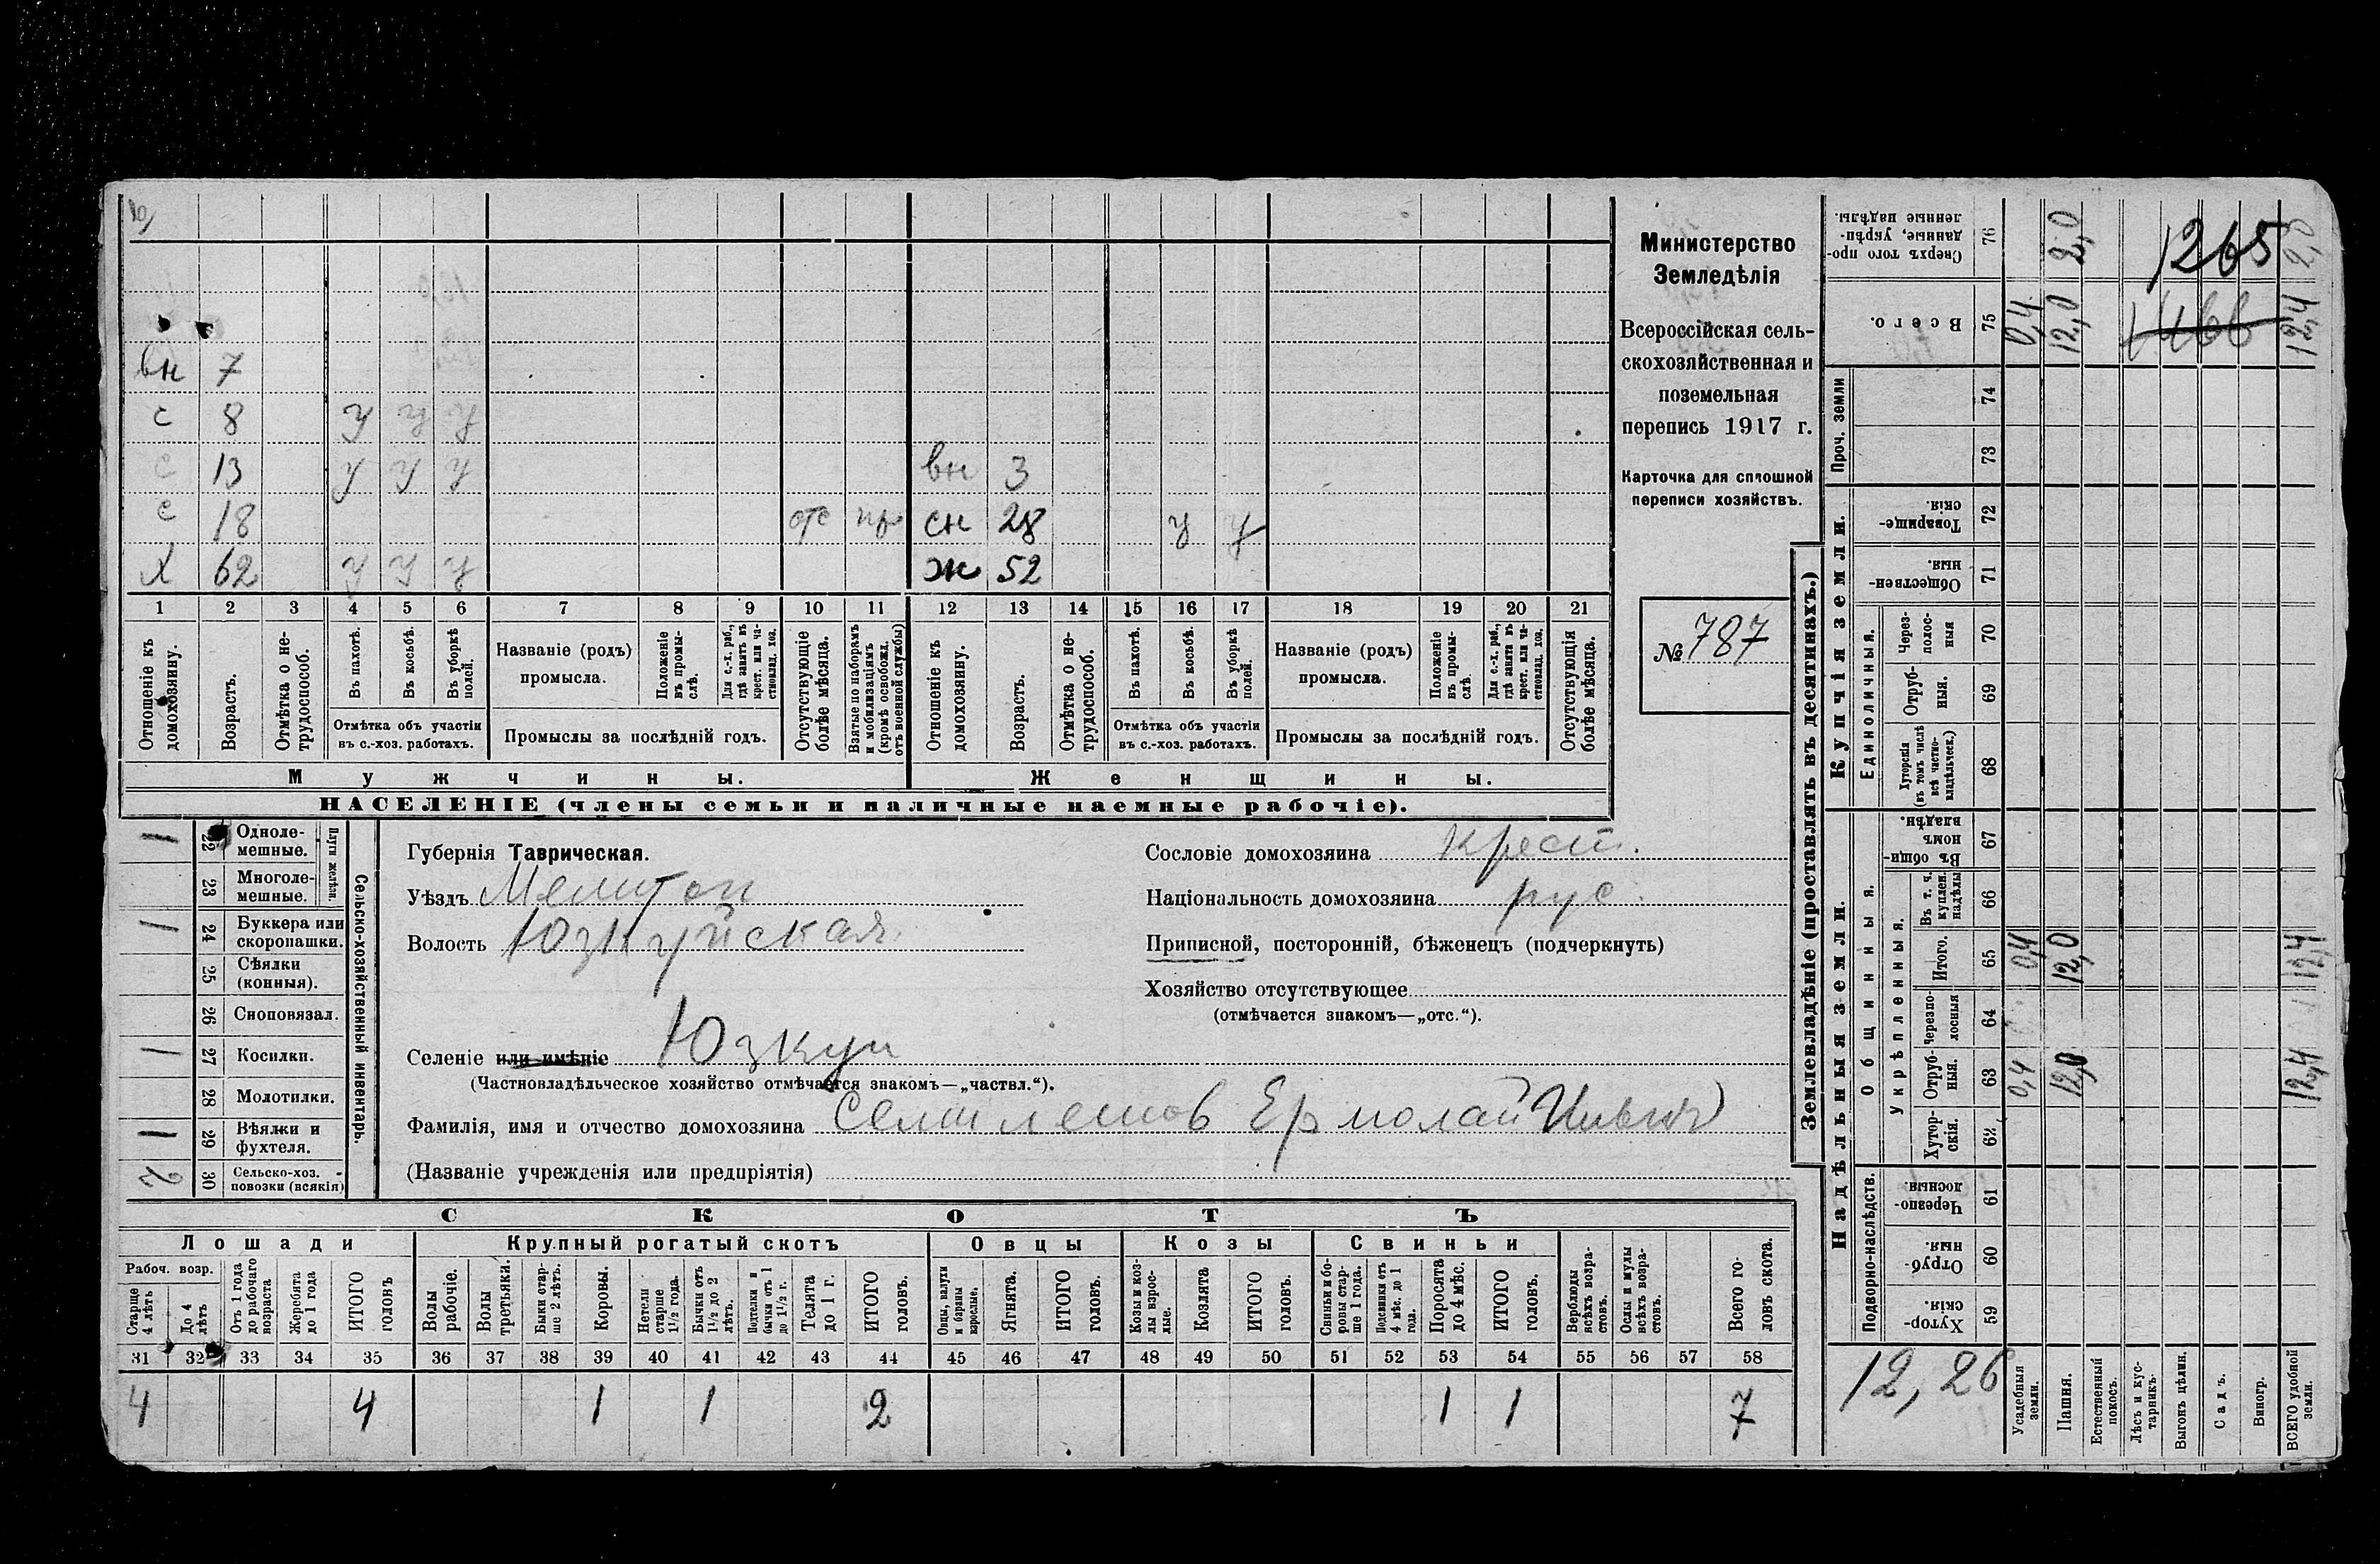 вн 7
с 8 у у у
с 13 у у у вн 3
с 18 отс пр сн 28 у у
х 62 у у у ж 52
1 2 3 4 5 6 7 8 9 10 11 12 13 14 15 16 17 18 19 20 21
Отношеніе къ домохозяину.
Возрастъ.
Отмѣтка о не-трудоспособ.
Въ пахотѣ.
Въ косьбѣ.
Въ уборкѣ полей.
Отмѣтка объ участіи въ с.-хоз. работахъ.
Названіе (родъ) промысла.
Положеніе въ промы-слѣ.
Для с.-х. раб., гдѣ занятъ въ крест. или ча-стновлад. хоз.
Промыслы за послѣдній годъ.
Отсутствующіе болѣе мѣсяца.
Взятые по наборамъ и мобилизаціямъ (кромѣ освобожд. отъ военной службы)
Отношеніе къ домохозяину.
Возрастъ.
Отмѣтка о не-трудоспособ.
Въ пахотѣ.
Въ косьбѣ.
Въ уборкѣ полей.
Отмѣтка объ участіи въ с.-хоз. работахъ.
Названіе (родъ) промысла.
Положеніе въ промы-слѣ.
Для с.-х. раб., гдѣ занята въ крест. или ча-стновлад. хоз.
Промыслы за послѣдній годъ.
Отсутствующія болѣе мѣсяца.
Мужчины. Женщины.
НАСЕЛЕНІЕ (члены семьи и наличные наемные рабочіе).
Министерство
Земледѣлія
Всероссійская сель-
скохозяйственная и
поземельная
перепись 1917 г.
Карточка для сплошной
переписи хозяйствъ.
№ 787
1 22 Одноле-мешные.
23 Многоле-мешные.
Плуги желѣзн.
1 24 Буккера или скоропашки.
25 Сѣялки (конныя).
26 Сноповязал.
1 27 Косилки.
28 Молотилки.
1 29 Вѣялки и фухтеля.
2 30 Сельско-хоз. повозки (всякія)
Сельско-хозяйственный инвентарь.
Губернія Таврическая.
Уѣздъ Мелитоп
Волость Юзкуйская
Селеніе или имѣніе Юзкуи
(Частновладѣльческое хозяйство отмѣчается знакомъ—„частвл.“).
Фамилія, имя и отчество домохозяина Ермолай
(Названіе учрежденія или предпріятія)
Сословіе домохозяина крест.
Національность домохозяина рус.
Приписной, посторонній, бѣженецъ (подчеркнуть)
Хозяйство отсутствующее
(отмѣчается знакомъ—„отс.“).
СКОТЪ
Лошади Крупный рогатый скотъ Овцы Козы Свиньи
Рабоч. возр.
Старше 4 лѣтъ
До 4 лѣтъ
Отъ 1 года до рабочаго возраста
Жеребята до 1 года
ИТОГО головъ
Волы рабочіе.
Волы третьяки.
Быки стар-ше 2 лѣтъ.
Коровы.
Нетели старше 1½ года.
Бычки отъ 1½ до 2 лѣтъ.
Подтелки и бычки отъ 1 до 1½ г.
Телята до 1 г.
ИТОГО головъ.
Овцы, валухи и бараны взрослые.
Ягнята.
ИТОГО головъ.
Козы и коз-лы взрос-лые.
Козлята
ИТОГО головъ.
Свиньи и бо-ровы стар-ше 1 года.
Подсвинки отъ 4 мѣс. до 1 года.
Поросята до 4 мѣс.
ИТОГО головъ.
Верблюды всѣхъ возра-стовъ.
Ослы и мулы всѣхъ возра-стовъ.
Всего го-ловъ скота.
31 32 33 34 35 36 37 38 39 40 41 42 43 44 45 46 47 48 49 50 51 52 53 54 55 56 57 58
4 4 1 1 2 1 1 7
Землевладѣніе (проставлять въ десятинахъ.)
Сверхъ того про-данные, укрѣп-ленные надѣлы. 76 2,0 2,0
1265
Всего. 75 0,4 12,0 12,4
Проч. земли 74
73
Купчія земли.
Товарище-скія. 72
Обществен-ныя. 71
Единоличныя.
Через-полос-ныя 70
Отруб-ныя. 69
Хуторскія (въ томъ числѣ всѣ частно-владѣльческ.) 68
Надѣльныя земли.
Общинныя.
Въ общи-номъ владѣн. 67
Укрѣпленныя.
Въ т. ч. куплен. надѣлы 66
Итого. 65 0,4 12,0 12,4
Черезпо-лосныя 64
Отруб-ныя. 63 0,4 12,0 12,4
Хутор-скія. 62
Подворно-наслѣдств.
Черезпо-лосныя. 61
Отруб-ныя. 60
Хутор-скія 59
12,26
Усадебныя земли.
Пашня.
Естественный покосъ.
Лѣсъ и кус-тарникъ.
Выгонъ цѣлин.
Садъ.
Виногр.
ВСЕГО удобной земли.